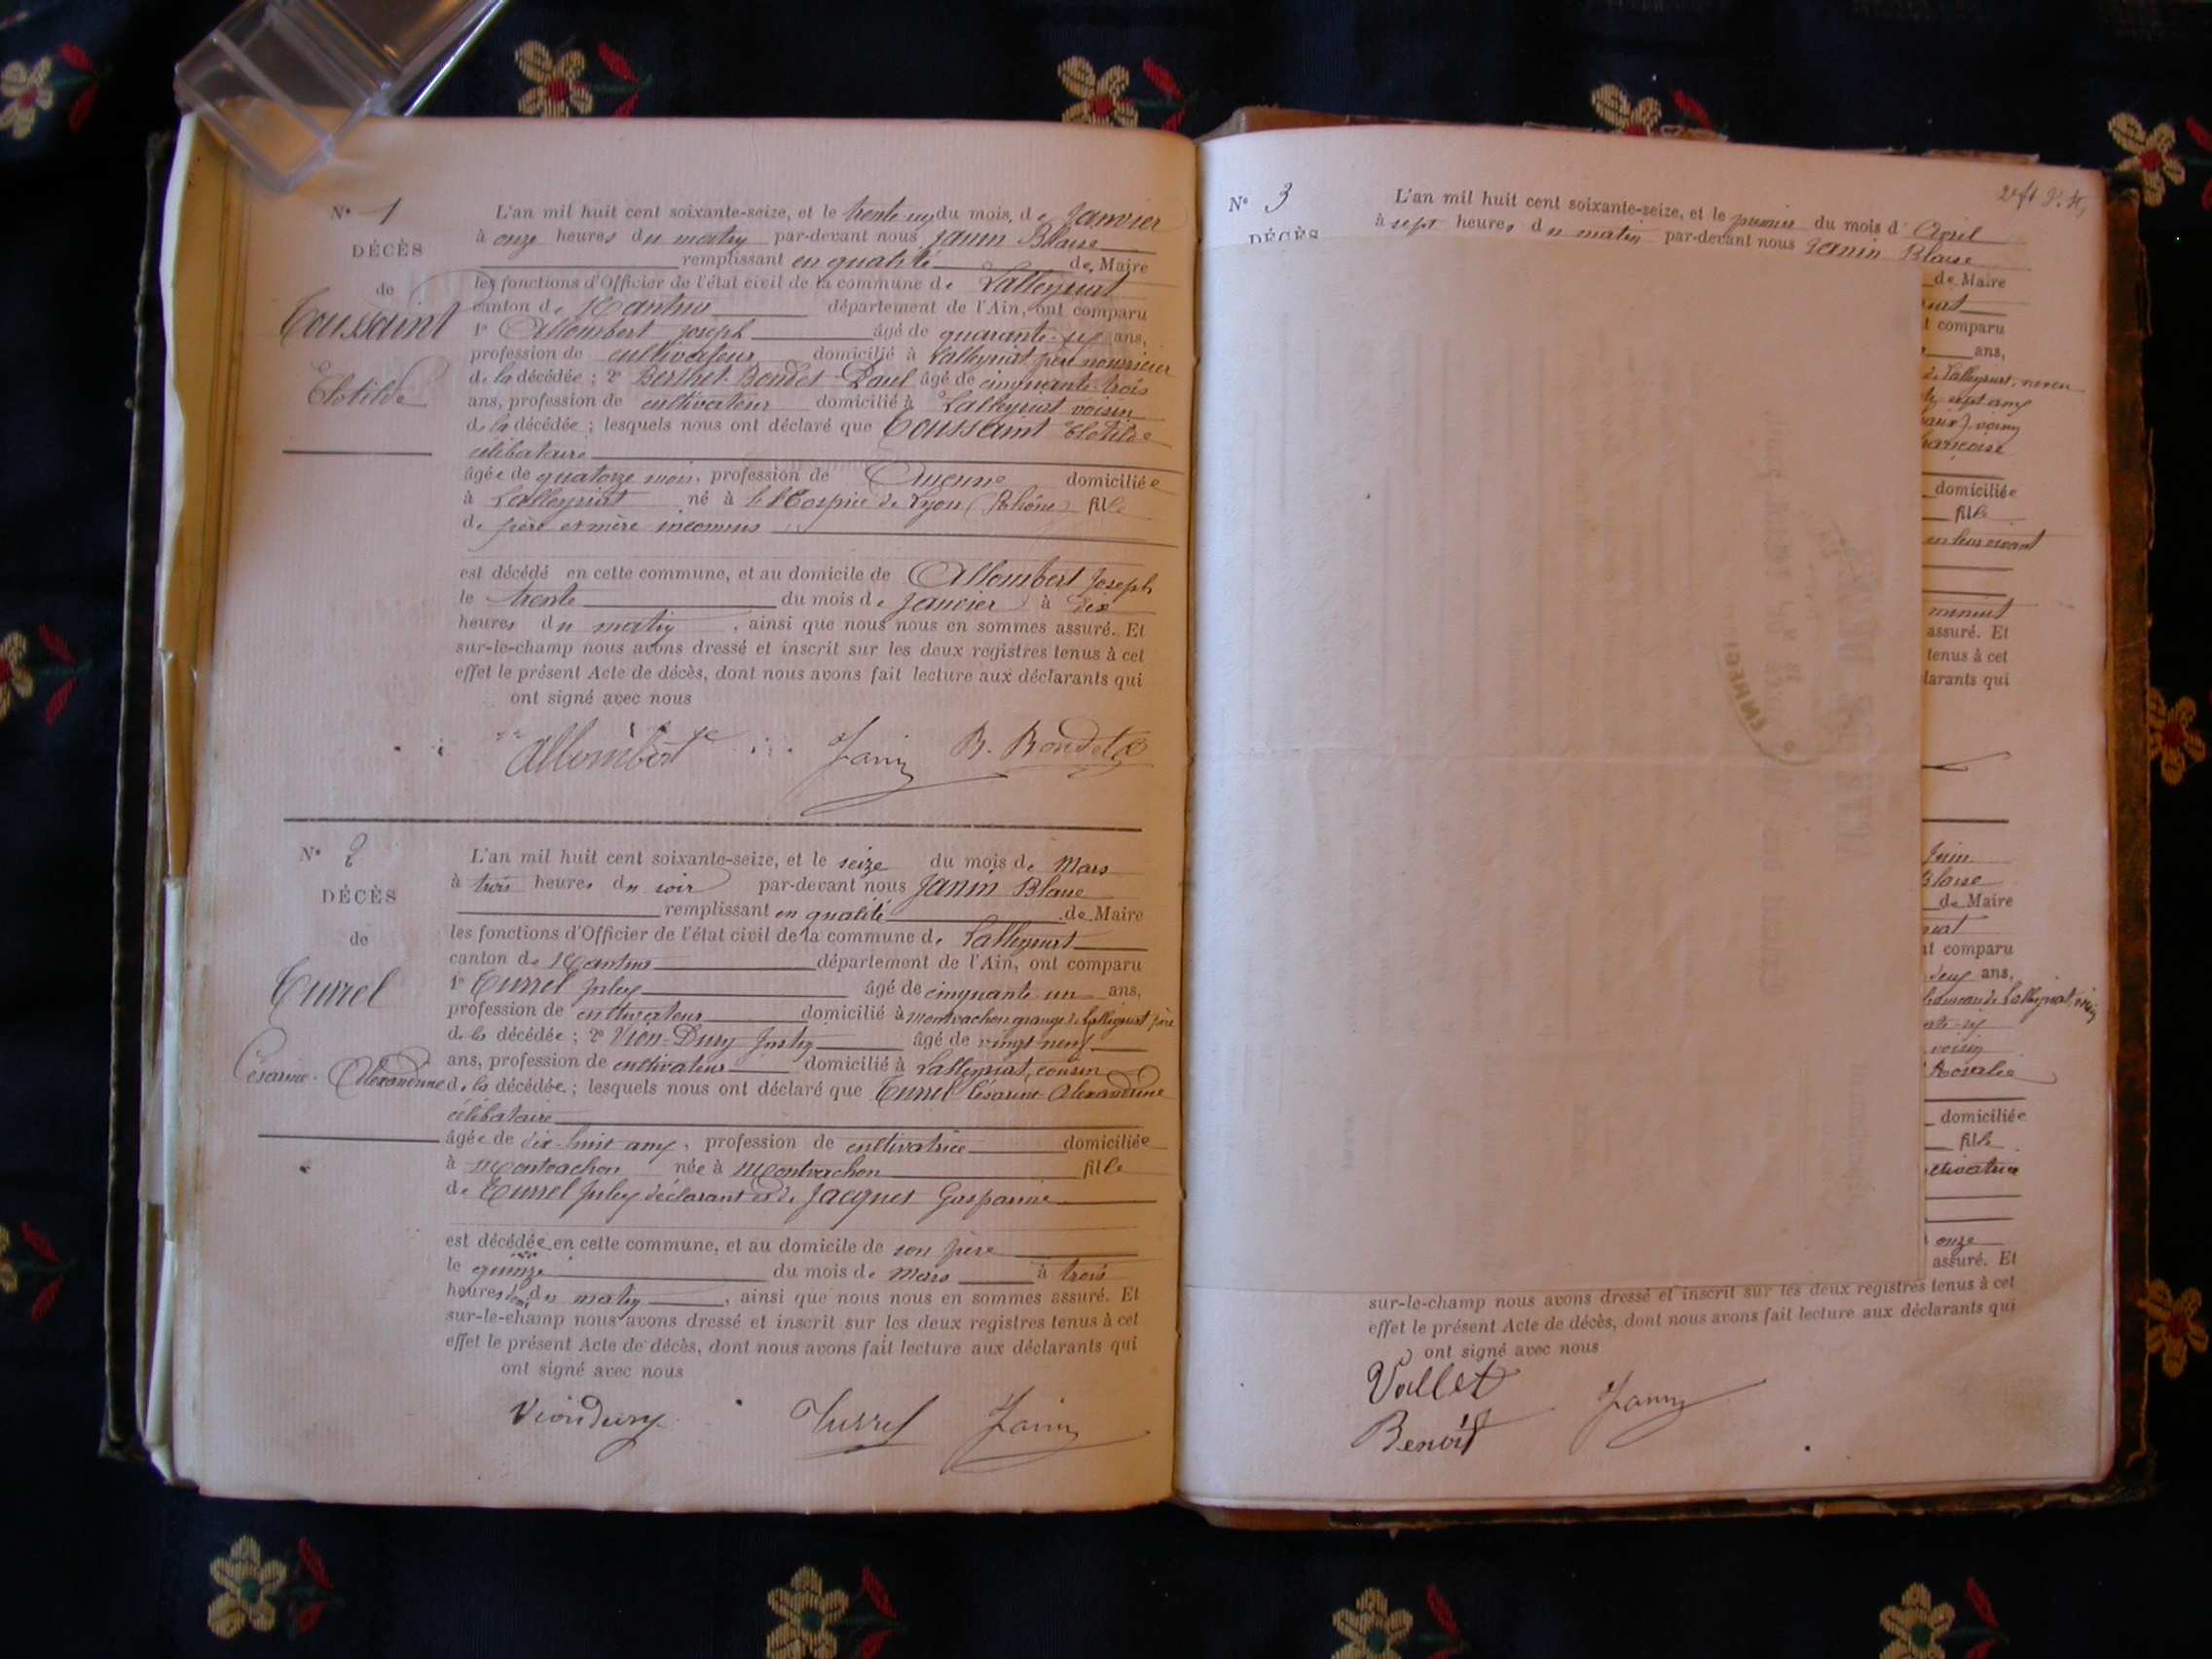 N° 1
DÉCÈS
de
Toussaint
Clotilde
L'an mil huit cent soixante-seize, et le trente-un du mois de Janvier
à onze heures du matin par-devant nous Janin Blaise
remplissant en qualité de Maire
les fonctions d'Officier de l'état civil de la commune de Lalleyriat
canton de Nantua département de l'Ain, ont comparu
1° Allombert Joseph âgé de quarante-six ans,
profession de cultivateur domicilié à Lalleyriat père nourricier
de la décédée ; 2° Berthet-Bondet Paul âgé de cinquante-trois
ans, profession de cultivateur domicilié à Lalleyriat voisin
de la décédée ; lesquels nous ont déclaré que Toussaint Clotilde
célibataire
âgée de quatorze mois, profession de Aucune domiciliée
à Lalleyriat né à l'Hospice de Lyon (Rhône) fille
de père et mère inconnus
est décédé en cette commune, et au domicile de Allombert Joseph
le trente du mois de Janvier à dix
heures du matin, ainsi que nous nous en sommes assuré. Et
sur-le-champ nous avons dressé et inscrit sur les deux registres tenus à cet
effet le présent Acte de décès, dont nous avons fait lecture aux déclarants qui
ont signé avec nous
Allombert Janin B. Bondet
N° 2
DÉCÈS
de
Turrel
Césarine-Alexandrine
L'an mil huit cent soixante-seize, et le seize du mois de Mars
à trois heures du soir par-devant nous Janin Blaise
remplissant en qualité de Maire
les fonctions d'Officier de l'état civil de la commune de Lalleyriat
canton de Nantua département de l'Ain, ont comparu
1° Turrel Julien âgé de cinquante-un ans,
profession de cultivateur domicilié à Montvachon grange de Lalleyriat père
de la décédée ; 2° Vion-Dury Justin âgé de vingt-neuf
ans, profession de cultivateur domicilié à Lalleyriat, cousin
de la décédée ; lesquels nous ont déclaré que Turrel Césarine-Alexandrine
célibataire
âgée de dix-huit ans, profession de cultivatrice domiciliée
à Montvachon née à Montvachon fille
de Turrel Julien déclarant et de Jacquet Gasparine
est décédée en cette commune, et au domicile de son père
le quinze du mois de Mars à trois
heures du matin, ainsi que nous nous en sommes assuré. Et
sur-le-champ nous avons dressé et inscrit sur les deux registres tenus à cet
effet le présent Acte de décès, dont nous avons fait lecture aux déclarants qui
ont signé avec nous
Viondury Turrel Janin
N° 3
DÉCÈS
L'an mil huit cent soixante-seize, et le premier du mois d'Avril
à sept heures du matin par-devant nous Janin Blaise
de Maire
comparu
ans,
de Lalleyriat, neveu
voisin
domiciliée
fille
assuré. Et
tenus à cet
larants qui
Juin
Blaise
de Maire
comparu
ans,
voisin
Rosalie
domiciliée
fille
onze
assuré. Et
sur-le-champ nous avons dressé et inscrit sur les deux registres tenus à cet
effet le présent Acte de décès, dont nous avons fait lecture aux déclarants qui
ont signé avec nous
Vallet
Benoît Janin